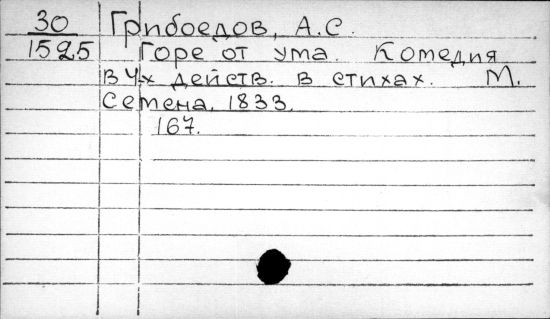 30 Грибоедов, А.С.
1525 Горе от ума. Комедия
в 4х действ. в стихах. М.
Семена. 1833.
167.